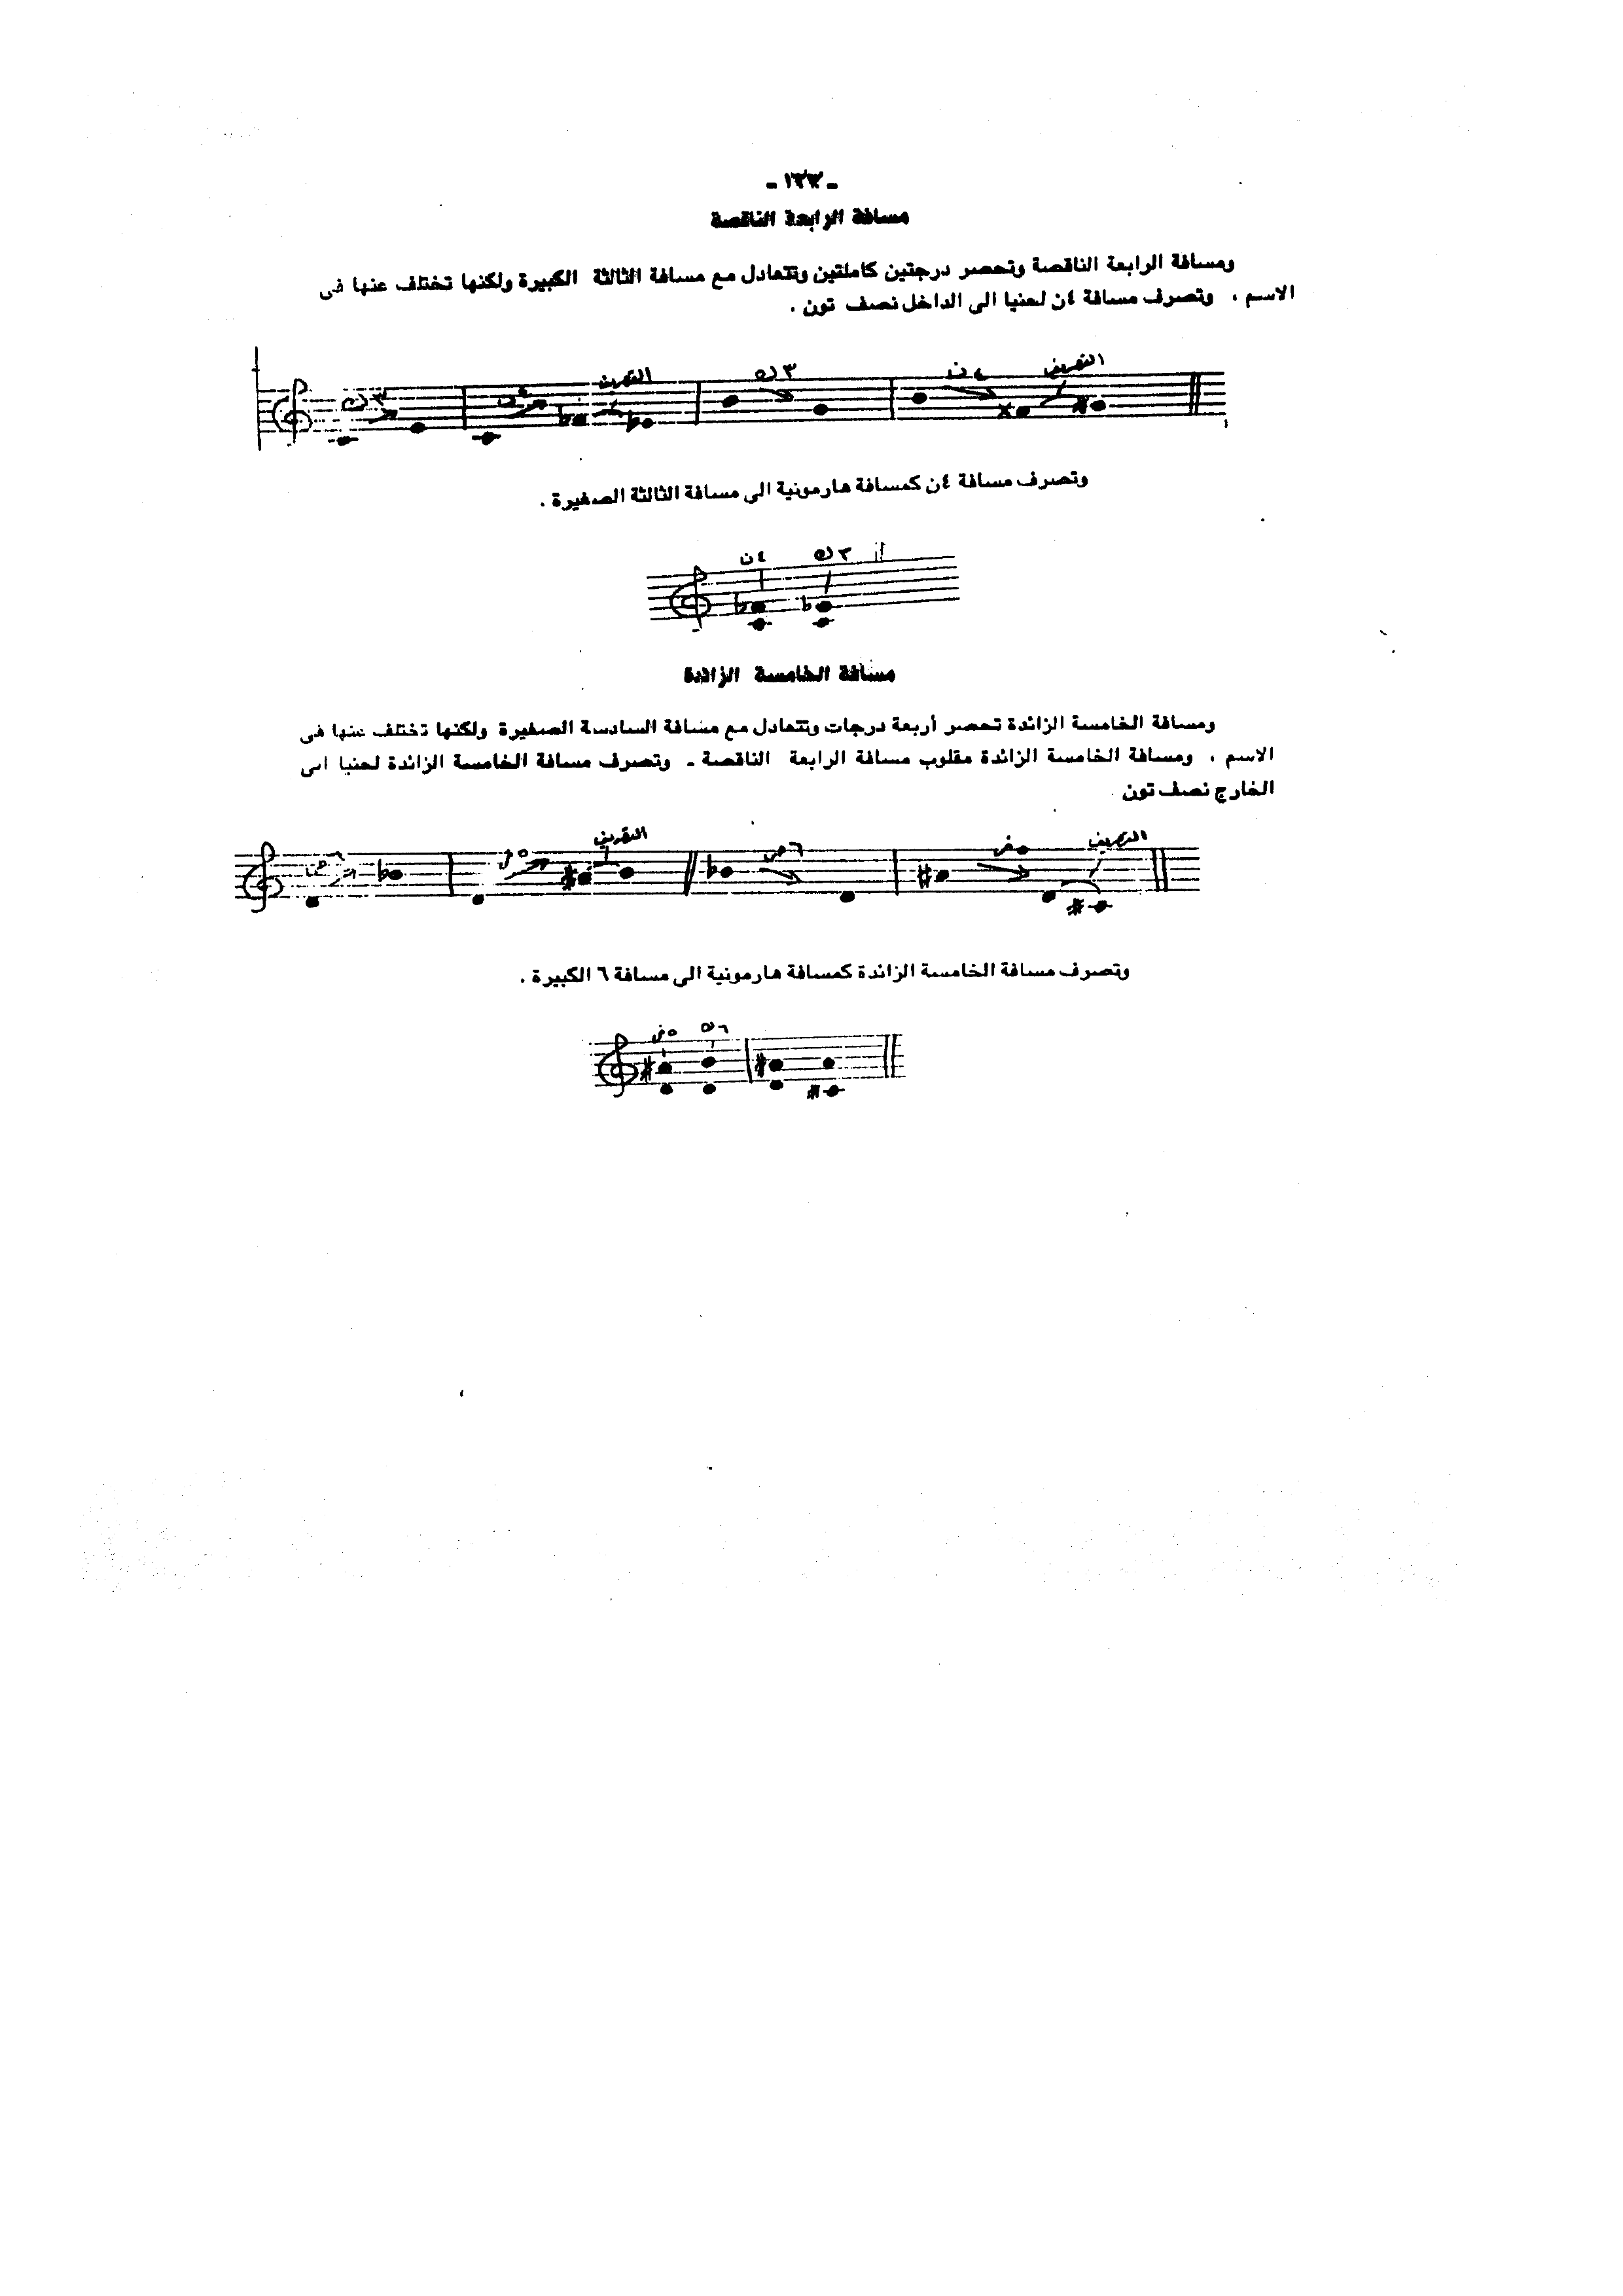 - ١٣٣ -
مسافة الرابعة الناقصة
ومسافة الرابعة الناقصة وتحصر درجتين كاملتين وتتعادل مع مسافة الثالثة الكبيرة ولكنها تختلف عنها فى
الاسم ، وتصرف مسافة ٤ن لحنيا الى الداخل نصف تون .
٣ ك ٤ ن التصريف ٣ ك ٤ ن التصريف
وتصرف مسافة ٤ن كمسافة هارمونية الى مسافة الثالثة الصغيرة .
٤ ن ٣ ك
مسافة الخامسة الزائدة
ومسافة الخامسة الزائدة تحصر أربعة درجات وتتعادل مع مسافة السادسة الصغيرة ولكنها تختلف عنها فى
الاسم ، ومسافة الخامسة الزائدة مقلوب مسافة الرابعة الناقصة ـ وتصرف مسافة الخامسة الزائدة لحنيا الى
الخارج نصف تون
٦ ص ٥ ز التصريف ٦ ص ٥ ز التصريف
وتصرف مسافة الخامسة الزائدة كمسافة هارمونية الى مسافة ٦ الكبيرة .
٥ ز ٦ ك